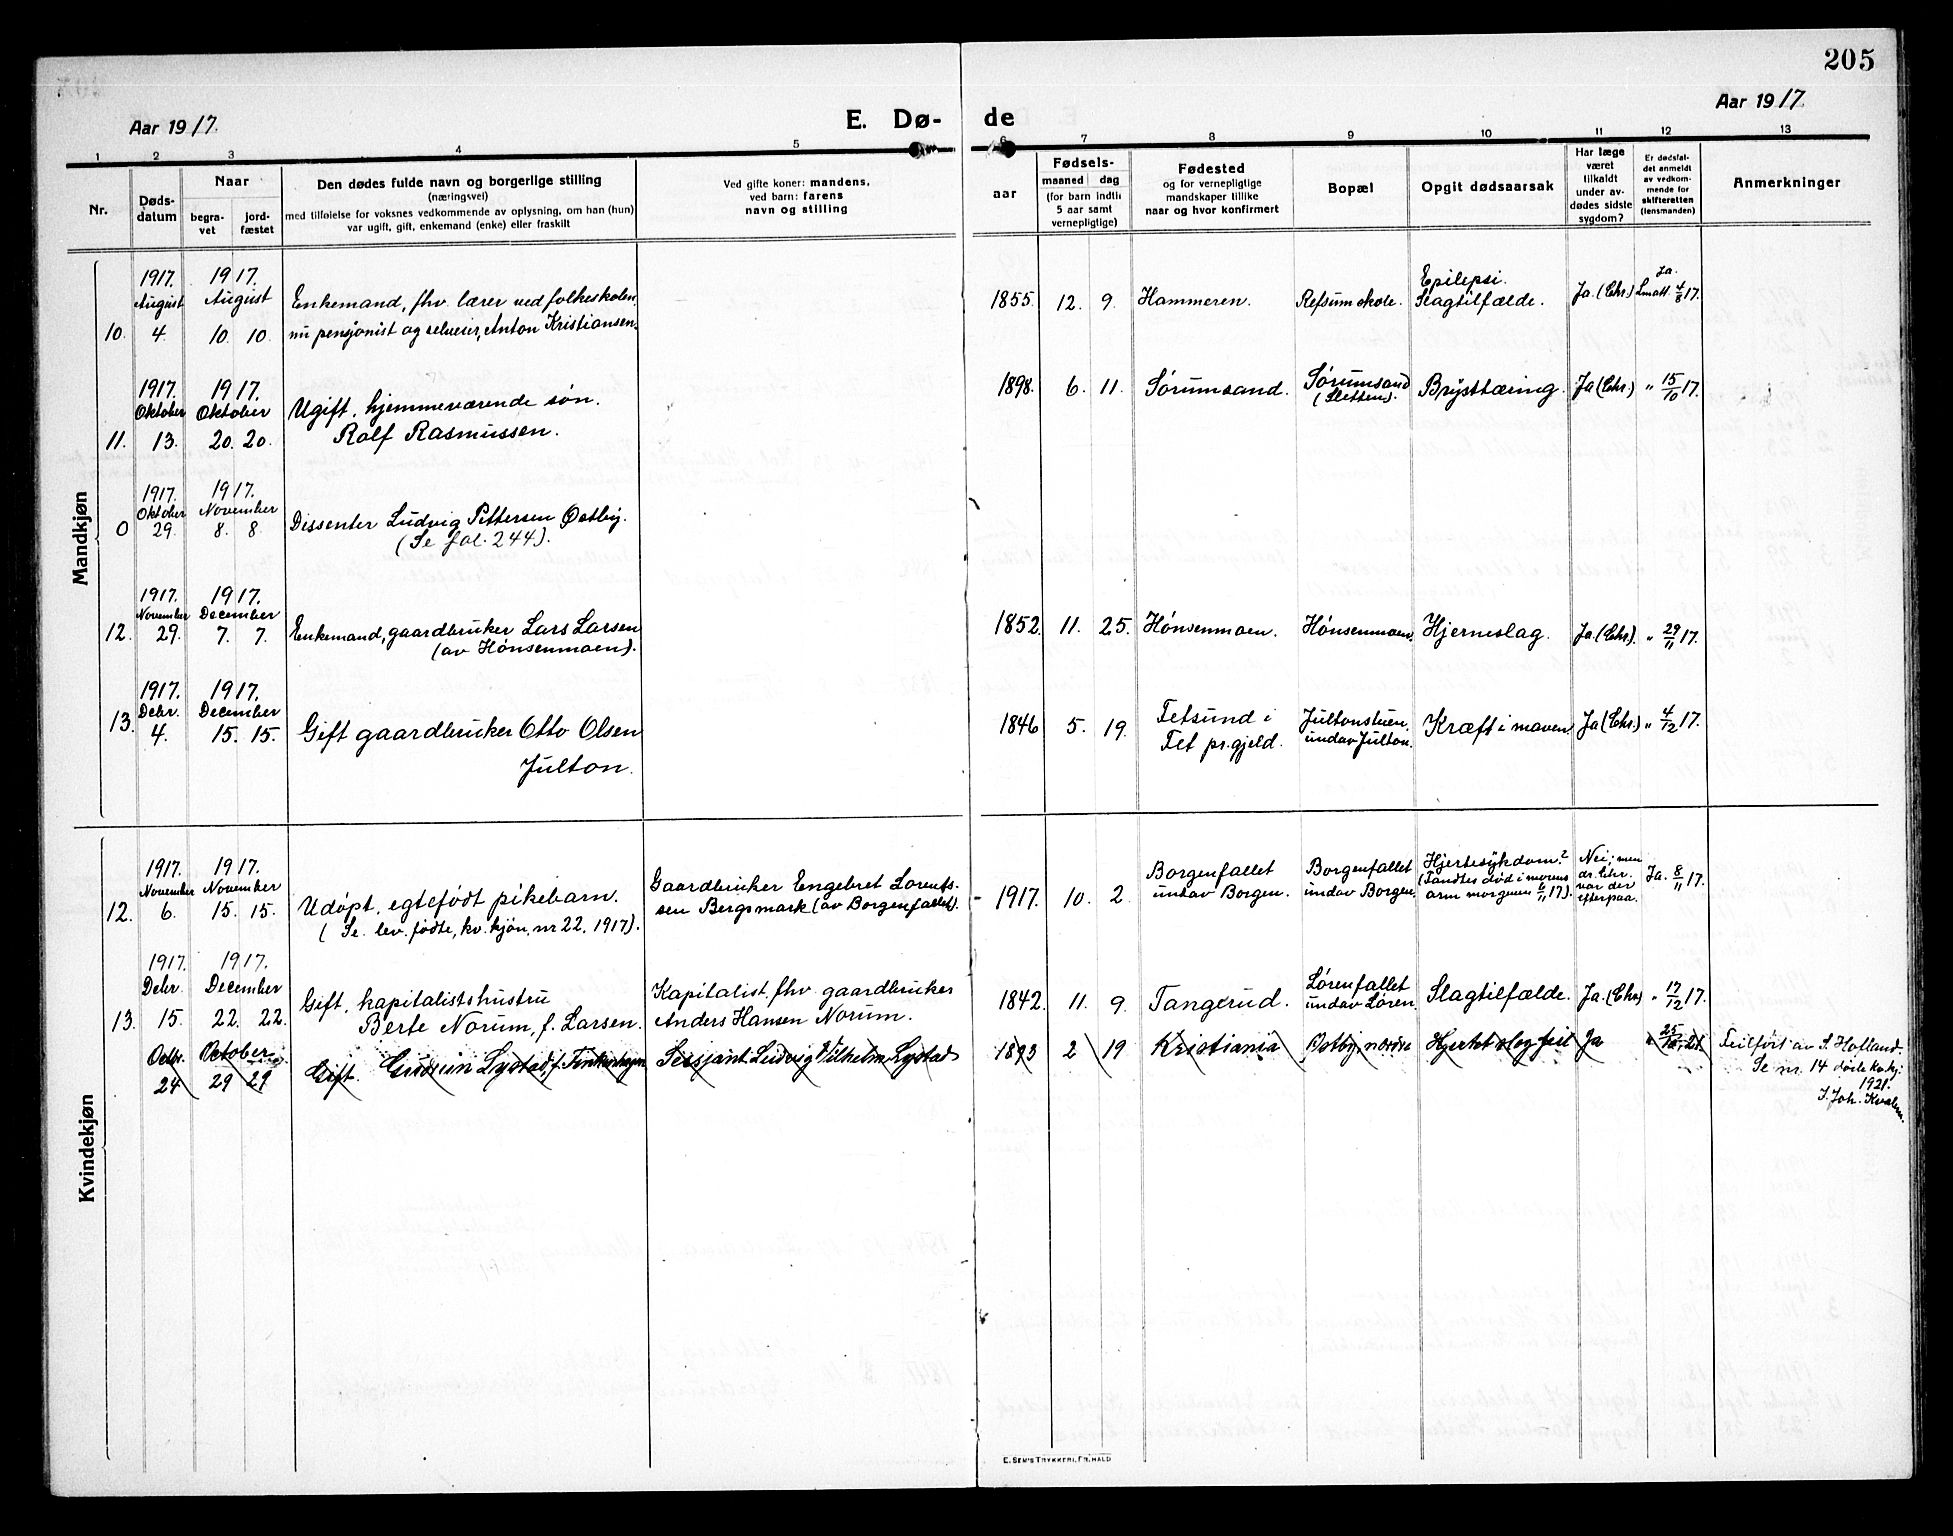 205
Aar 1917.
E. Dø-
de
Aar 1917.
1 2 3 4 5 6 7 8 9 10 11 12 13
Nr.
Døds-
datum
Naar
begra-
vet
jord-
fæstet
Den dødes fulde navn og borgerlige stilling
(næringsvei)
med tilføielse for voksnes vedkommende av oplysning, om han (hun)
var ugift, gift, enkemand (enke) eller fraskilt
Ved gifte koner: mandens,
ved barn: farens
navn og stilling
aar
Fødsels-
maaned dag
(for barn indtil
5 aar samt
vernepligtige)
Fødested
og for vernepligtige
mandskaper tillike
naar og hvor konfirmert
Bopæl
Opgit dødsaarsak
Har læge
været
tilkaldt
under av-
dødes sidste
sygdom?
Er dødsfal-
det anmeldt
av vedkom-
mende for
skifteretten
(lensmanden)
Anmerkninger
Mandkjøn
10.
1917.
August
4.
1917.
August
10. 10.
Enkemand, fhv. lærer ved folkeskolen,
nu pensjonist og selveier, Anton Kristiansen.
1855. 12. 9.
Hammeren.
Refsum skole.
Epilepsi.
Slagtilfælde.
Ja. (Chr.)
Ja.
Lmatt. 4/8 17.
11.
1917.
Oktober
13.
1917.
Oktober
20. 20.
Ugift, hjemmeværende søn.
Rolf Rasmussen.
1898. 6. 11.
Sørumsand.
Sørumsand
(Sletten).
Brysttæring.
Ja (Chr.)
" 15/10 17.
0
1917.
Oktober
29.
1917.
November
8. 8.
Dissenter Ludvig Pettersen Østby.
(Se fol. 244).
12.
1917.
November
29.
1917.
December
7. 7.
Enkemand, gaardbruker Lars Larsen
(av Hønsenmoen).
1852. 11. 25.
Hønsenmoen.
Hønsenmoen.
Hjerneslag.
Ja (Chr.).
" 29/11 17.
13.
1917.
Debr.
4.
1917.
December
15. 15.
Gift gaardbruker Otto Olsen
Julton.
1846 5. 19.
Fetsund i
Fet pr.gjeld.
Jultonstuen
undav Julton.
Kræft i maven
Ja (Chr.)
" 4/12 17.
Kvindekjøn
12.
1917.
November
6.
1917.
November
15. 15.
Udøpt, egtefødt pikebarn.
(Se lev. fødte, kv. kjøn, nr 22, 1917).
Gaardbruker Engebret Lorents-
sen Bergsmark (av Borgenfallet).
1917. 10. 2.
Borgenfallet
undav Borgen.
Borgenfallet
undav Borgen.
Hjertesykdom?
(Fandtes død i morens
arm morgenen 6/11 17).
Nei; men
dr. Chr.
var der
efterpaa.
Ja. 8/11 17.
13.
1917.
Debr.
15.
1917.
December
22. 22.
Gift, kapitalistshustru
Berte Norum, f. Larsen.
Kapitalist, fhv. gaardbruker
Anders Hansen Norum.
1842. 11. 9.
Tangerud.
Lørenfallet
undav Løren.
Slagtilfælde.
Ja. (Chr.)
" 17/12 17.
Octbr.
24
October
29 29
Gift. Gudrun Lystad, f.
Sersjant Ludvig Vilhelm Lystad
1893 2 19
Kristiania
Østby, nordre
Ja
" 25/10 21.
Feilført av S. Hofland.
Se nr. 14 døde kv.kj.
1921.
E. SEM'S TRYKKERI, FR.HALD